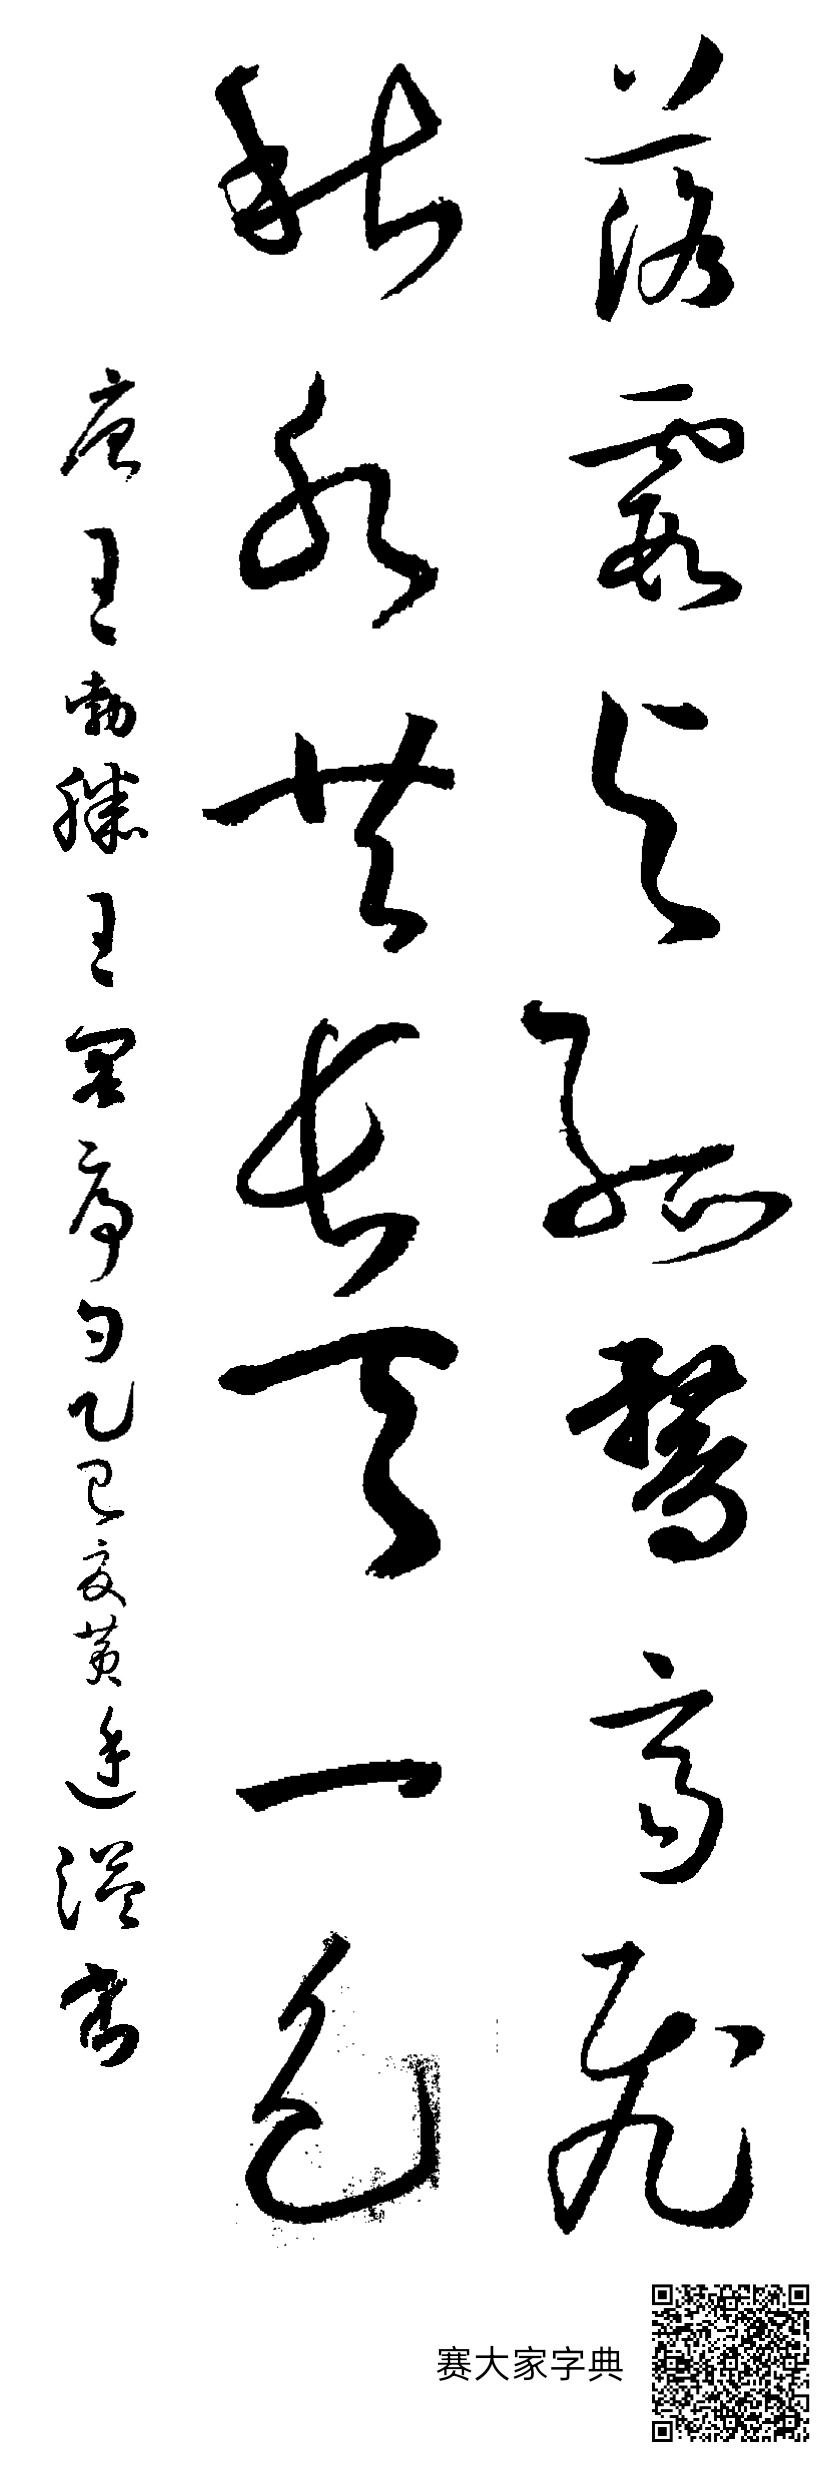 落霞与孤鹜齐飞
秋水共长天一色
唐王勃滕王阁序句乙巳夏黄廷溢书
赛大家字典